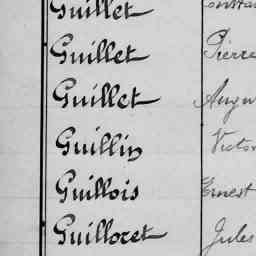 Guillet
Guillet Pierre
Guillet
Guillin Victor
Guillois Ernest
Guilloret Jules